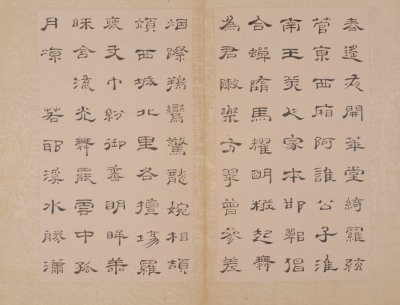 春遙夜開華堂綺羅絃
管東西廂阿誰公子淮
南王美人家本邯鄲倡
合蟬隋馬耀明妝起舞
為君樂方曾參差
烟際鸞驚龍婉相頡
頏西城北里各擅場羅
文巾紛御香明眸善
睞含流光舞罷雲中孤
月凉 若耶溪水勝瀟